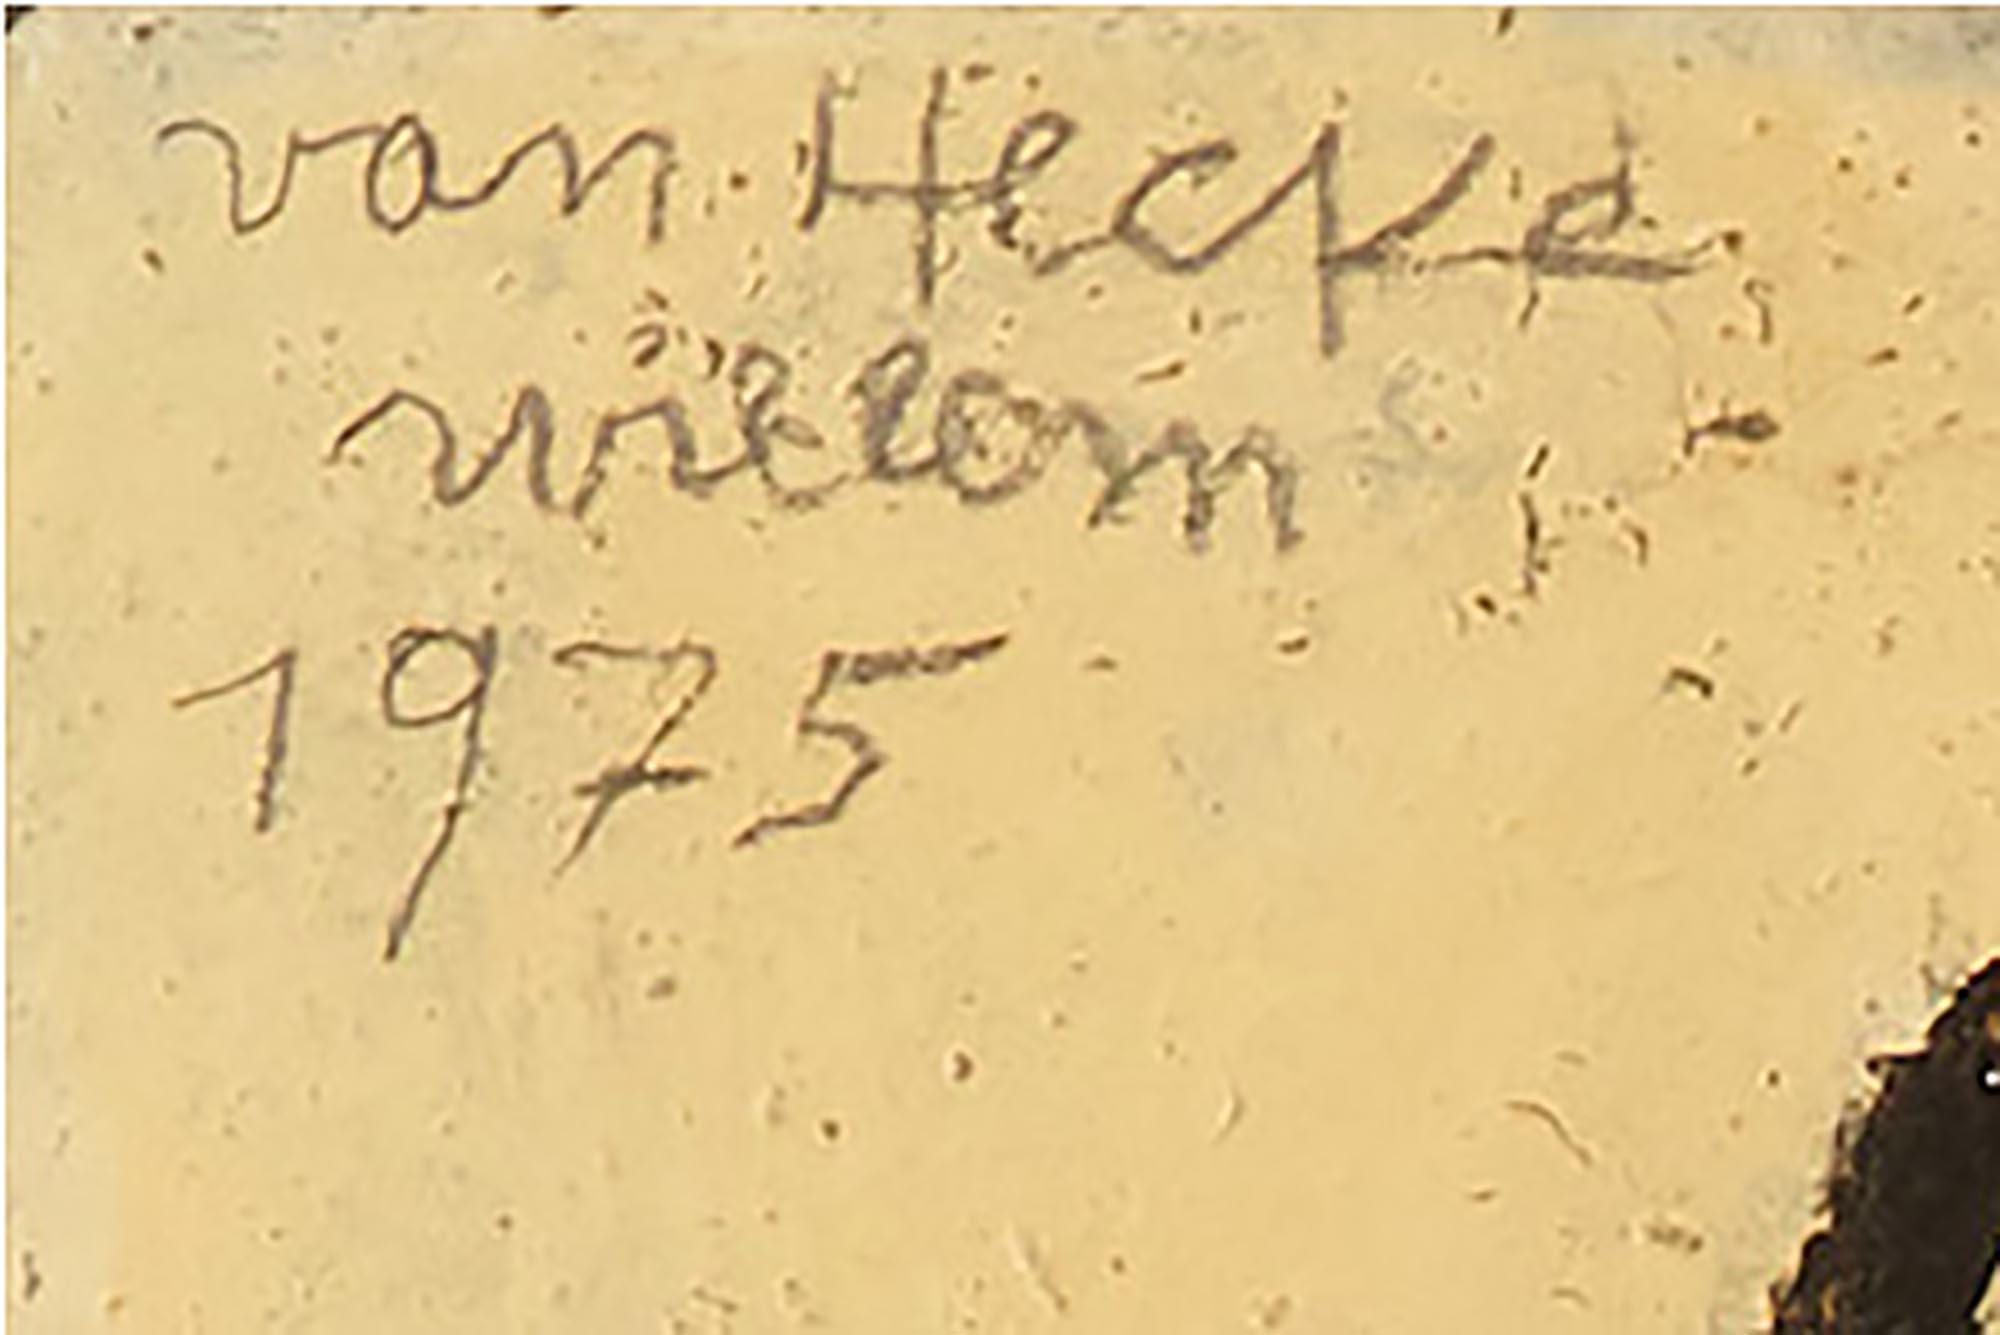 van Hecke
willem
1975